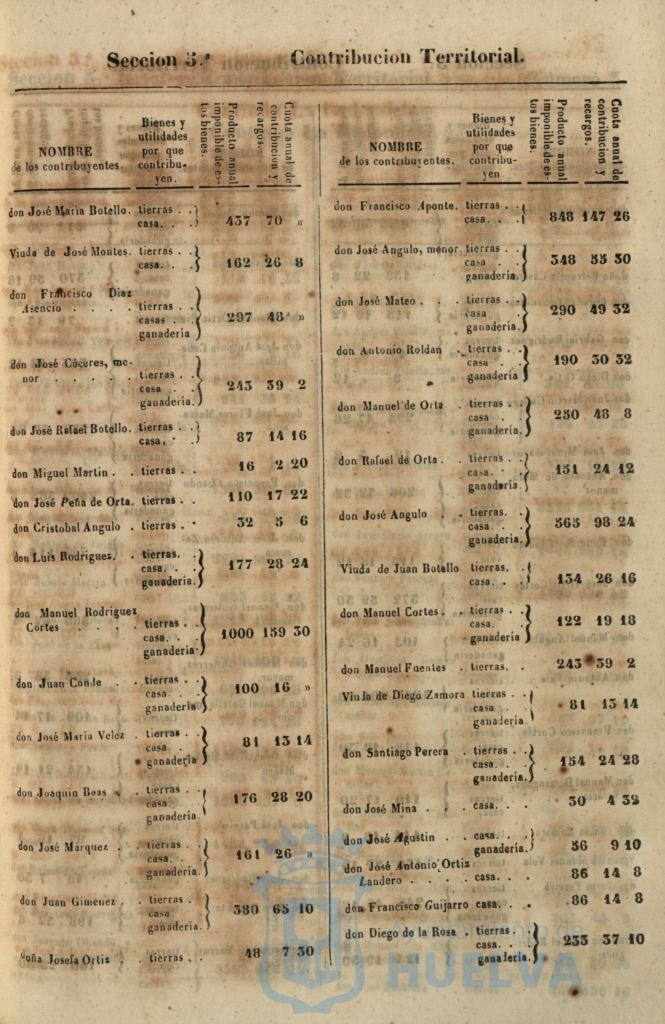 Seccion 5.ª Contribucion Territorial.
NOMBRE
de los contribuyentes.
Bienes y
utilidades
por que
contribu-
yen.
Producto anual
imponible de es-
tos bienes.
Cuota anual de
contribucion y
recargos.
don José Maria Botello. tierras . .
casa. . . 437 70 »
Viuda de José Montes. tierras . .
casa. . . 162 26 8
don Francisco Diaz
Asencio . . . . tierras . .
casas . . 297 48 »
ganaderia
don José Cáceres, me-
nor . . . . . tierras . .
casa . . 243 39 2
ganaderia.
don José Rafael Botello. tierras . .
casa. . 87 14 16
don Miguel Martin . . tierras . . 16 2 20
don José Peña de Orta. tierras . . 110 17 22
don Cristobal Angulo . tierras . . 32 5 6
don Luis Rodriguez. . tierras. .
casa. . . 177 28 24
ganaderia.
don Manuel Rodriguez
Cortes . . . . tierras . .
casa. . . 1000 159 30
ganaderia.
don Juan Conde . . tierras . .
casa . . 100 16 »
ganaderia
don José Maria Velez . tierras . .
casa . . 81 13 14
ganaderia
don Joaquin Boas . . tierras . .
casa. . . 176 28 20
ganaderia.
don José Márquez . . tierras . .
casa. . . 161 26 »
ganaderia.
don Juan Gimenez . . tierras . .
casa . . 380 65 10
ganaderia.
doña Josefa Ortiz . . tierras . . 48 7 30
NOMBRE
de los contribuyentes.
Bienes y
utilidades
por que
contribu-
yen
Producto anual
imponible de es-
tos bienes.
Cuota anual de
contribucion y
recargos.
don Francisco Aponte. tierras . .
casa. . . 848 147 26
don José Angulo, menor tierras . .
casa . . 348 55 30
ganaderia.
don José Mateo . . . tierras . .
casa . . 290 49 32
ganaderia.
don Antonio Roldan . tierras . .
casa . . 190 30 32
ganaderia
don Manuel de Orta . tierras . .
casa . . 250 48 8
ganaderia.
don Rafael de Orta . . tierras . .
casa. . . 151 24 12
ganaderia.
don José Angulo . . tierras. .
casa. . . 565 98 24
ganaderia.
Viuda de Juan Botello tierras. .
casa. . . 154 26 16
don Manuel Cortes. . tierras . .
casa. . . 122 19 18
ganaderia
don Manuel Fuentes . tierras. . 243 39 2
Viuda de Diego Zamora tierras . .
casa . . 81 13 14
ganaderia.
don Santiago Perera . tierras . .
casa. . . 154 24 28
ganaderia.
don José Mina . . . casa. . . 30 4 32
don José Agustin . casa. . .
ganaderia. 56 9 10
don José Antonio Ortiz
Landero . . . . casa. . . 86 14 8
don Francisco Guijarro casa. . . 86 14 8
don Diego de la Rosa . tierras. .
casa. . . 233 37 10
ganaderia.
HUELVA